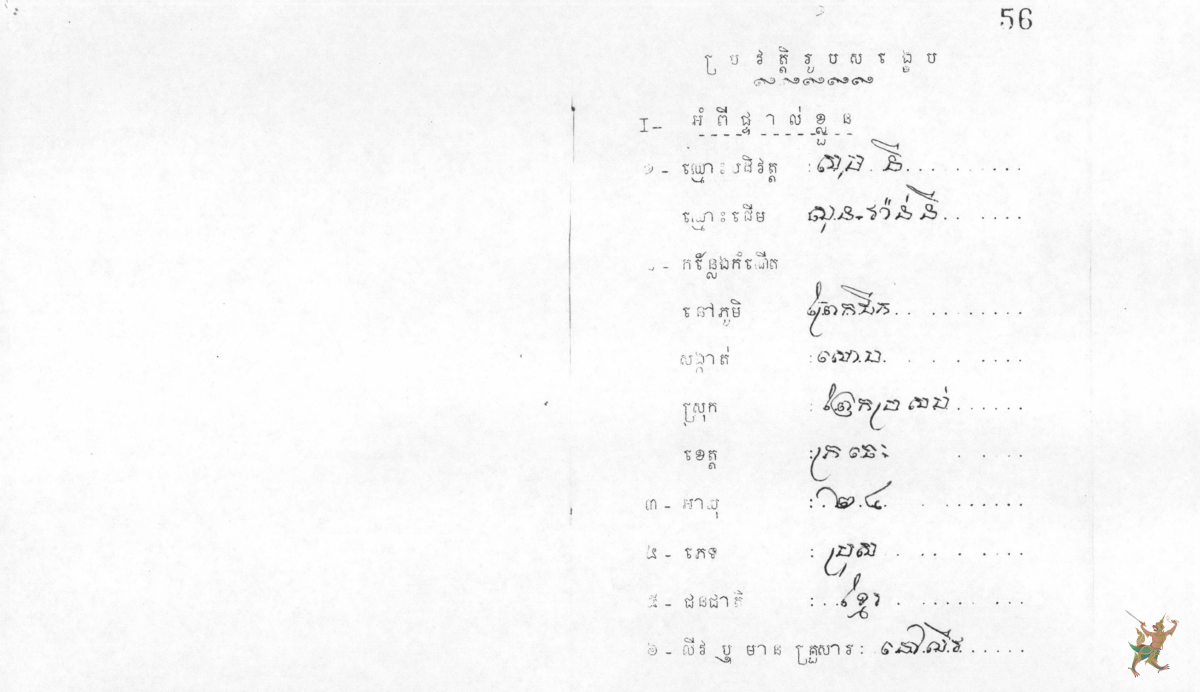 56
ប្រវត្តិរូបសង្ខេប
I- អំពីផ្ទាល់ខ្លួន
១- ឈ្មោះបដិវត្ត : សុធ នី
ឈ្មោះដើម សុន-វ៉ាន់ នី
២- កន្លែងកំណើត
នៅភូមិ ព្រែកជីក
សង្កាត់ : សោប
ស្រុក : ព្រែកប្រសព់
ខេត្ត : ក្រចេះ
៣- អាយុ : ២៤
៤- ភេទ : ប្រុស
៥- ជនជាតិ : ខ្មែរ
៦- លីវ ឬ មាន គ្រួសារ: នៅលីវ